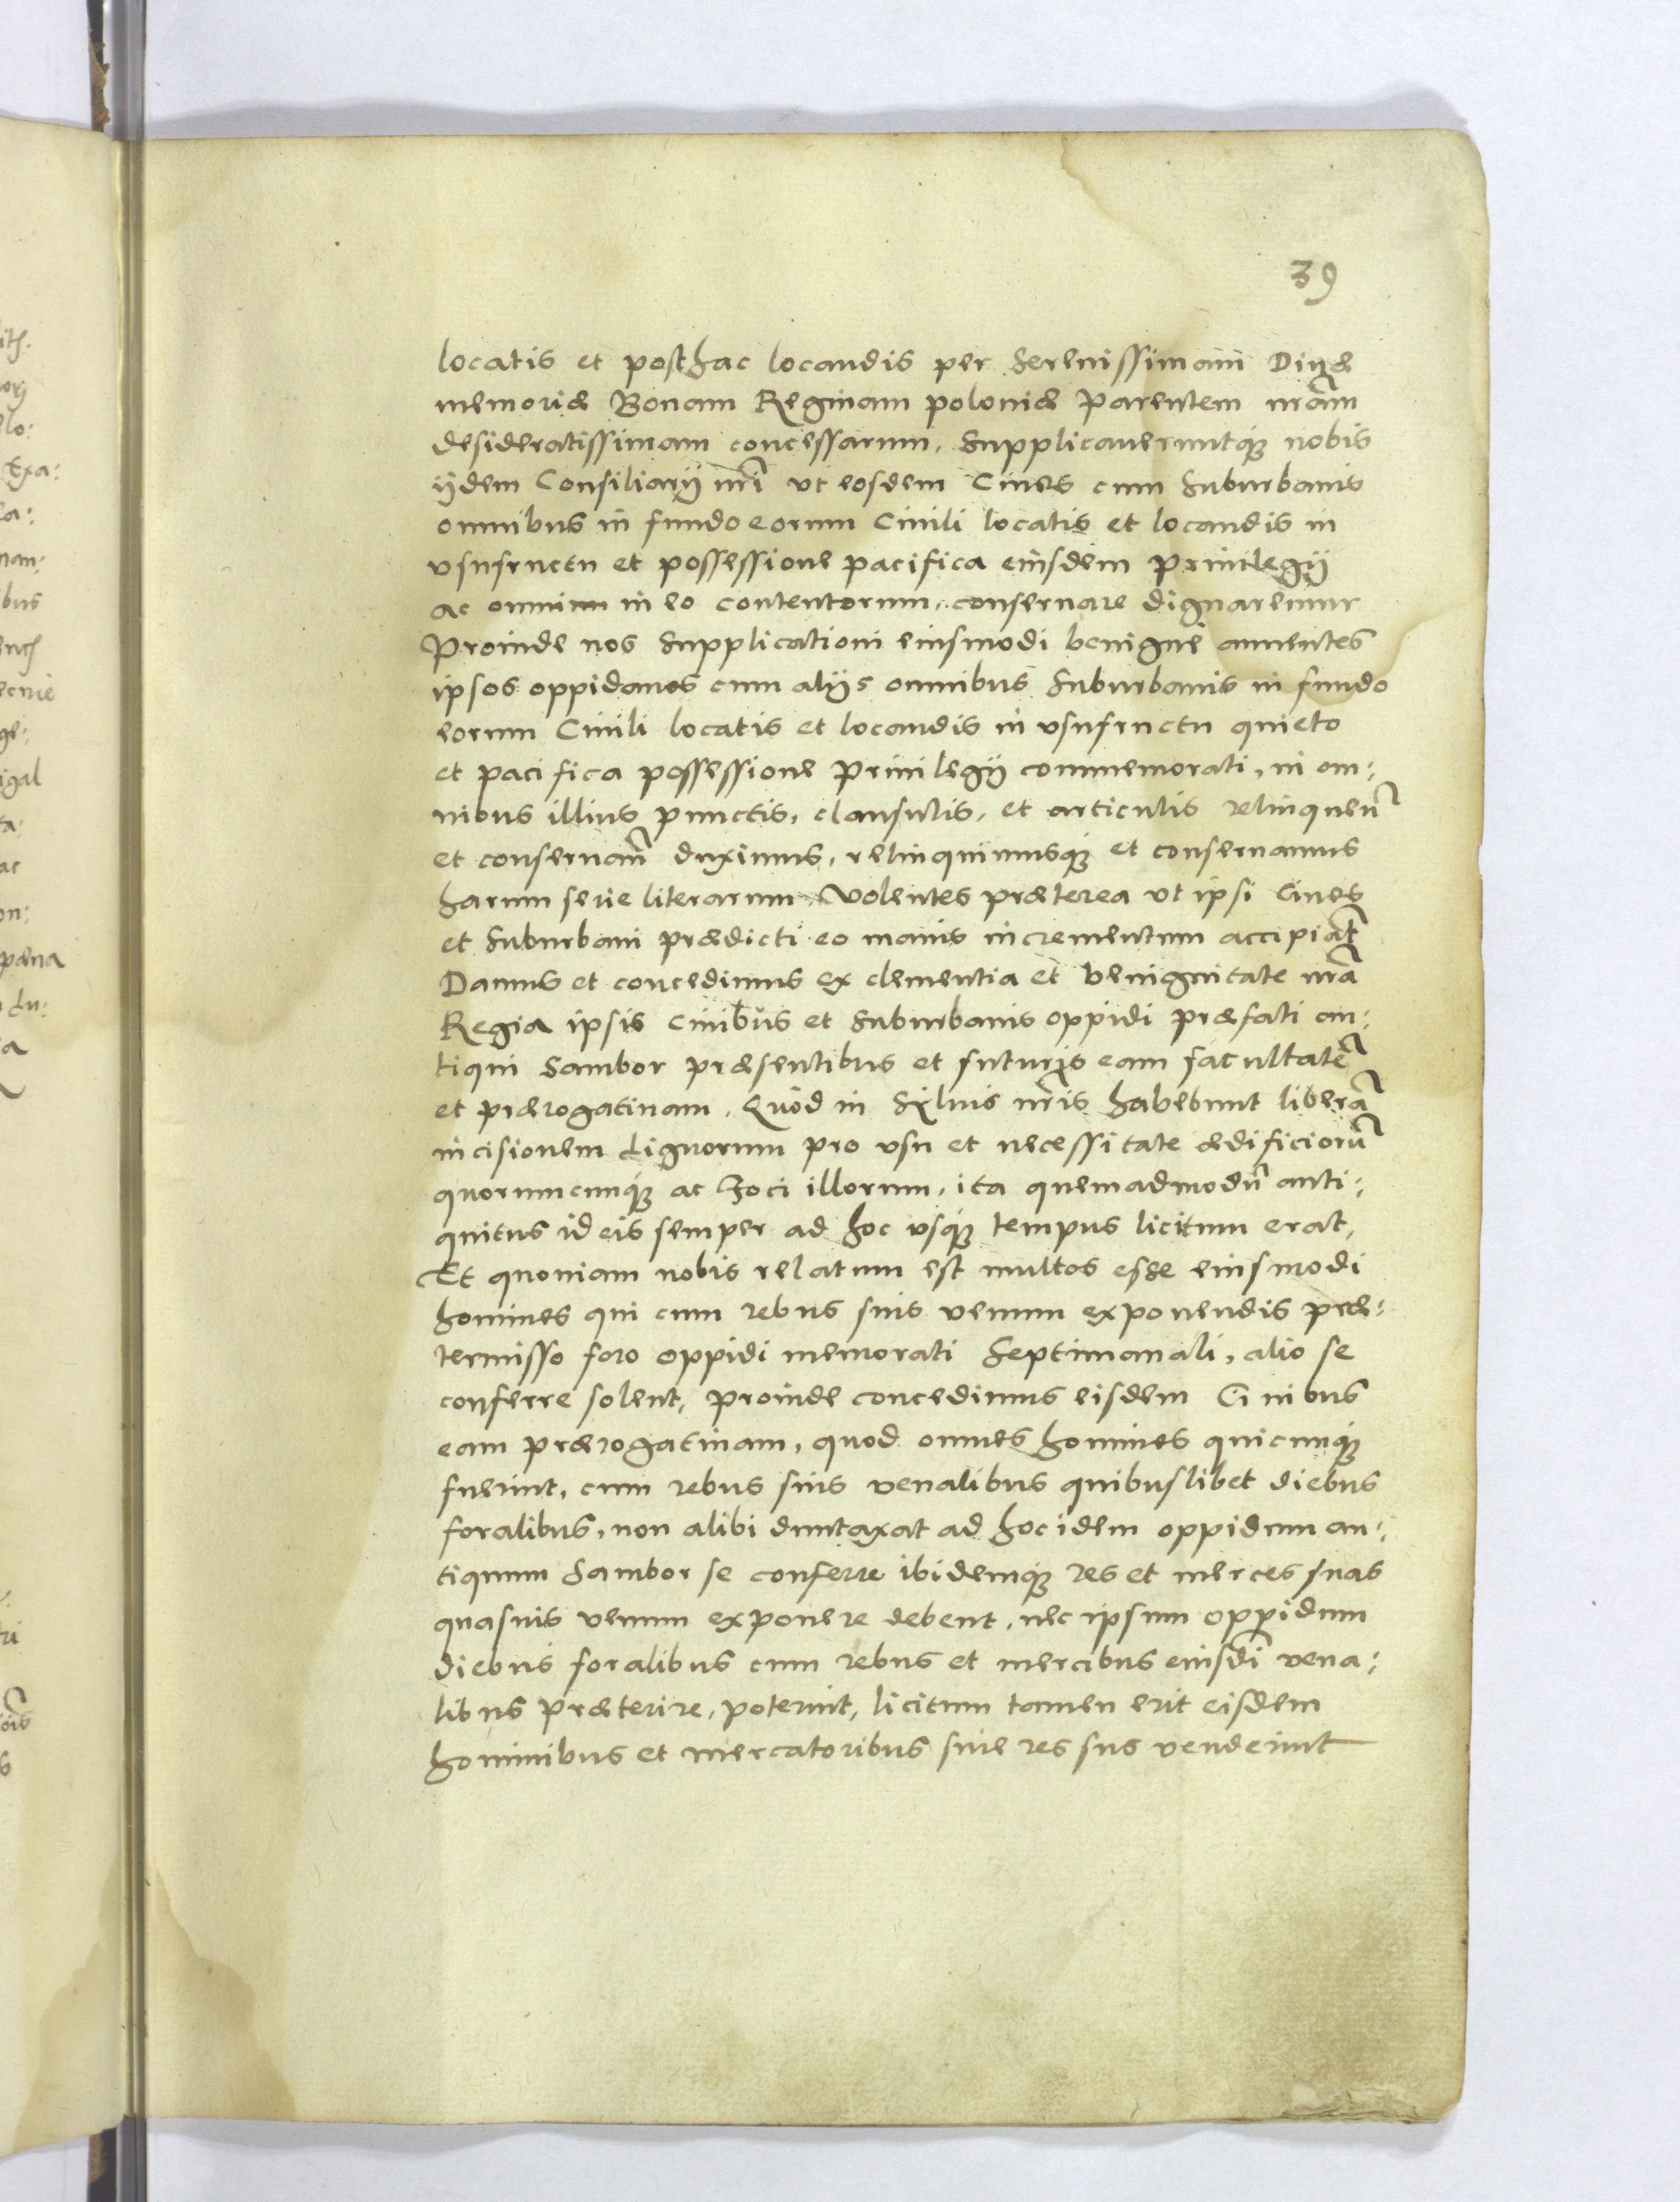 39
locatis et posthac locandis per Serenissimam Diuæ
memoriæ Bonam Reginam poloniæ Parentem nrãm
desideratissimam concessarum, Supplicaueruntq́ꝫ nobis
ijdem Consiliarij nrĩ vt eosdem Ciues cum Suburbanis
omnibus in fundo eorum Ciuili locatis et locandis in
vsufructu et possessione pacifica eiusdem Priuilegij
ac omnium in eo contentorum, conseruare dignaremur
Proinde nos Supplicationi eiusmodi benigne annuentes
ipsos oppidanos cum alijs omnibus Suburbanis in fundo
eorum Ciuili locatis et locandis in vsufructu quieto
et pacifica possessione Priuilegij commemorati, in om:
nibus illius punctis, clausulis, et articulis relinquen̄
et conseruan̄ duximus, relinquimusq́ꝫ et conseruamus
harum serie literarum Volentes præterea vt ipsi Ciues
et Suburbani prædicti eo maius incrementum accipiāt
Damus et concedimus ex clementia et benignitate nrã
Regia ipsis Ciuibus et Suburbanis oppidi præfati an:
tiqui Sambor præsentibus et futuris eam facultatē
et prærogatiuam, Quod in Syluis nrĩs habebunt liberā
incisionem Lignorum pro vsu et necessitate ædificiorū
quorumcunq́ꝫ ac foci illorum, ita quemadmodū anti:
quitus id eis semper ad hoc vsq́ꝫ tempus licitum erat,
Et quoniam nobis relatum est multos esse eiusmodi
homines qui cum rebus suis venum exponendis præ:
termisso foro oppidi memorati Septimanali, alio se
conferre solent, proinde concedimus eisdem Ciuibus
eam prærogatiuam, quod omnes homines quicunq́ꝫ
fuerint, cum rebus suis venalibus quibuslibet diebus
foralibus, non alibi duntaxat ad hoc idem oppidum an:
tiquum Sambor se conferre ibidemq́ꝫ res et merces suas
quasuis venum exponere debent, nec ipsum oppidum
diebus foralibus cum rebus et mercibus eiusdī vena:
libus Præterire, poterint, licitum tamen erit eisdem
hominibus et mercatoribus siue res sus vendeiint